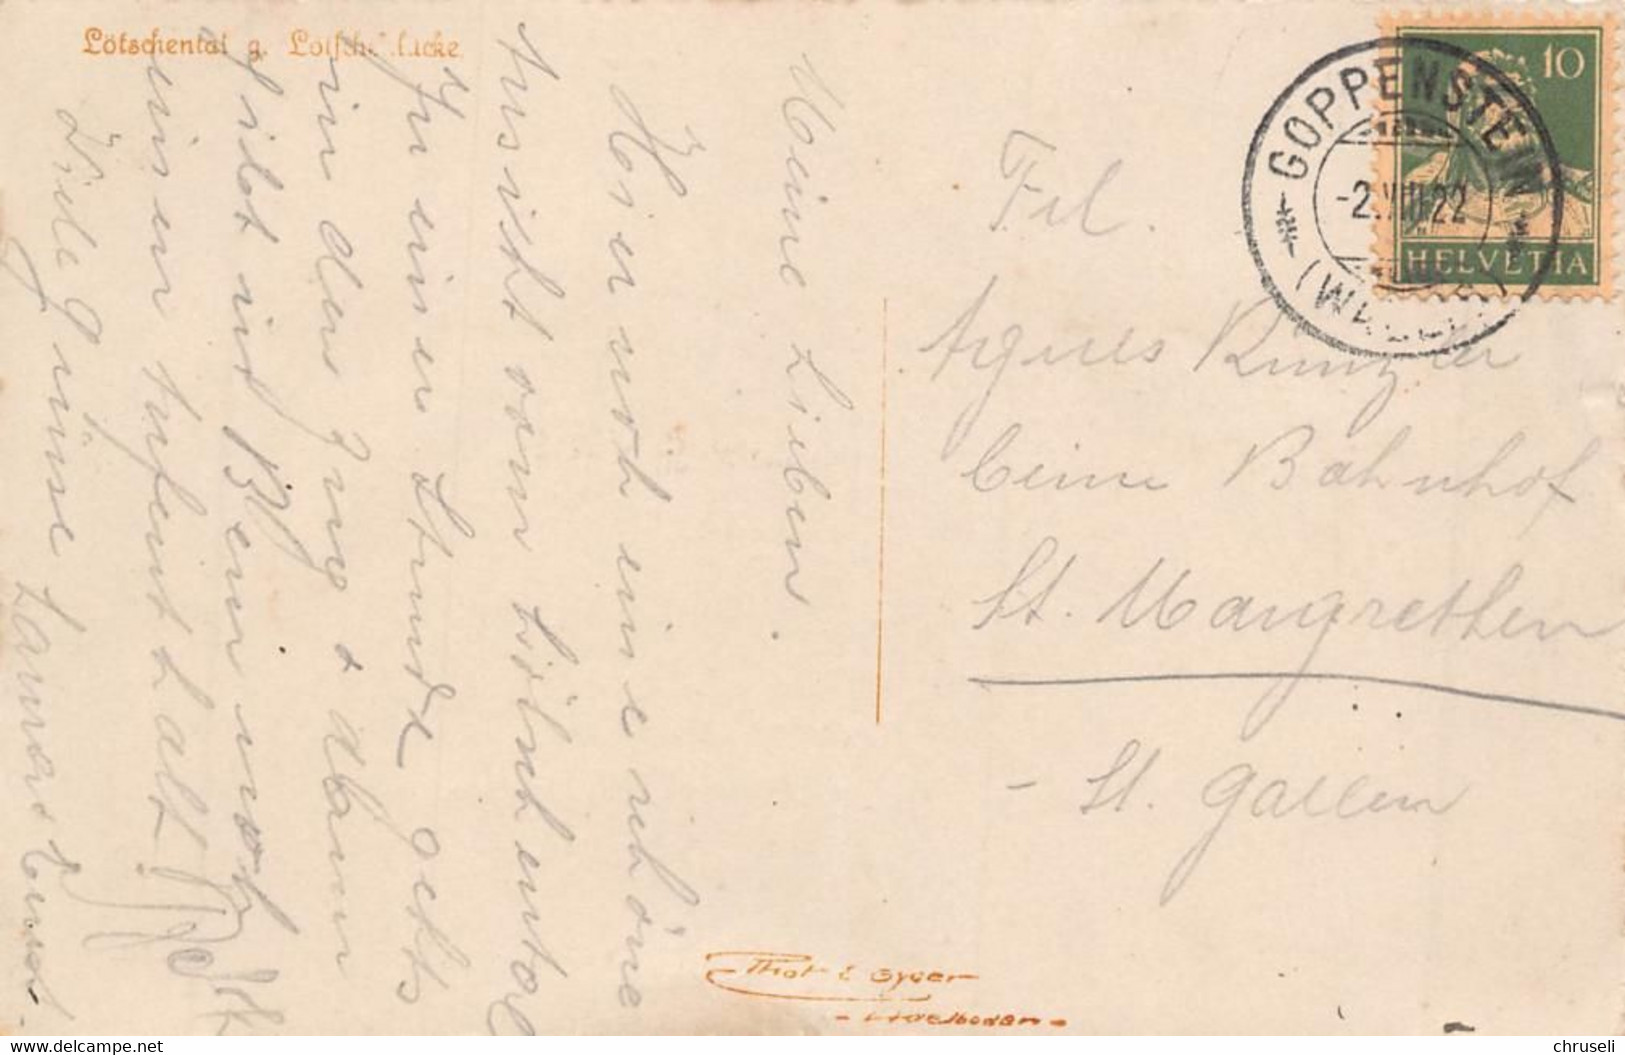 Lötschental g. Lötschenlücke
Meine Lieben.
Hier noch eine schöne
Ansicht vom Lötschental
In einer Stunde gehts
in den Zug & dann
gibt ins Bern noch
einen Aufenthalt
Viele Grüsse
Ernst.
Frl.
Agnes Künzler
beim Bahnhof
St. Margrethen
- St. Gallen
GOPPENSTEIN
-2.VIII.22
(WALLIS)
10
HELVETIA
Phot. E Gyger
- Adelboden -
chruseli